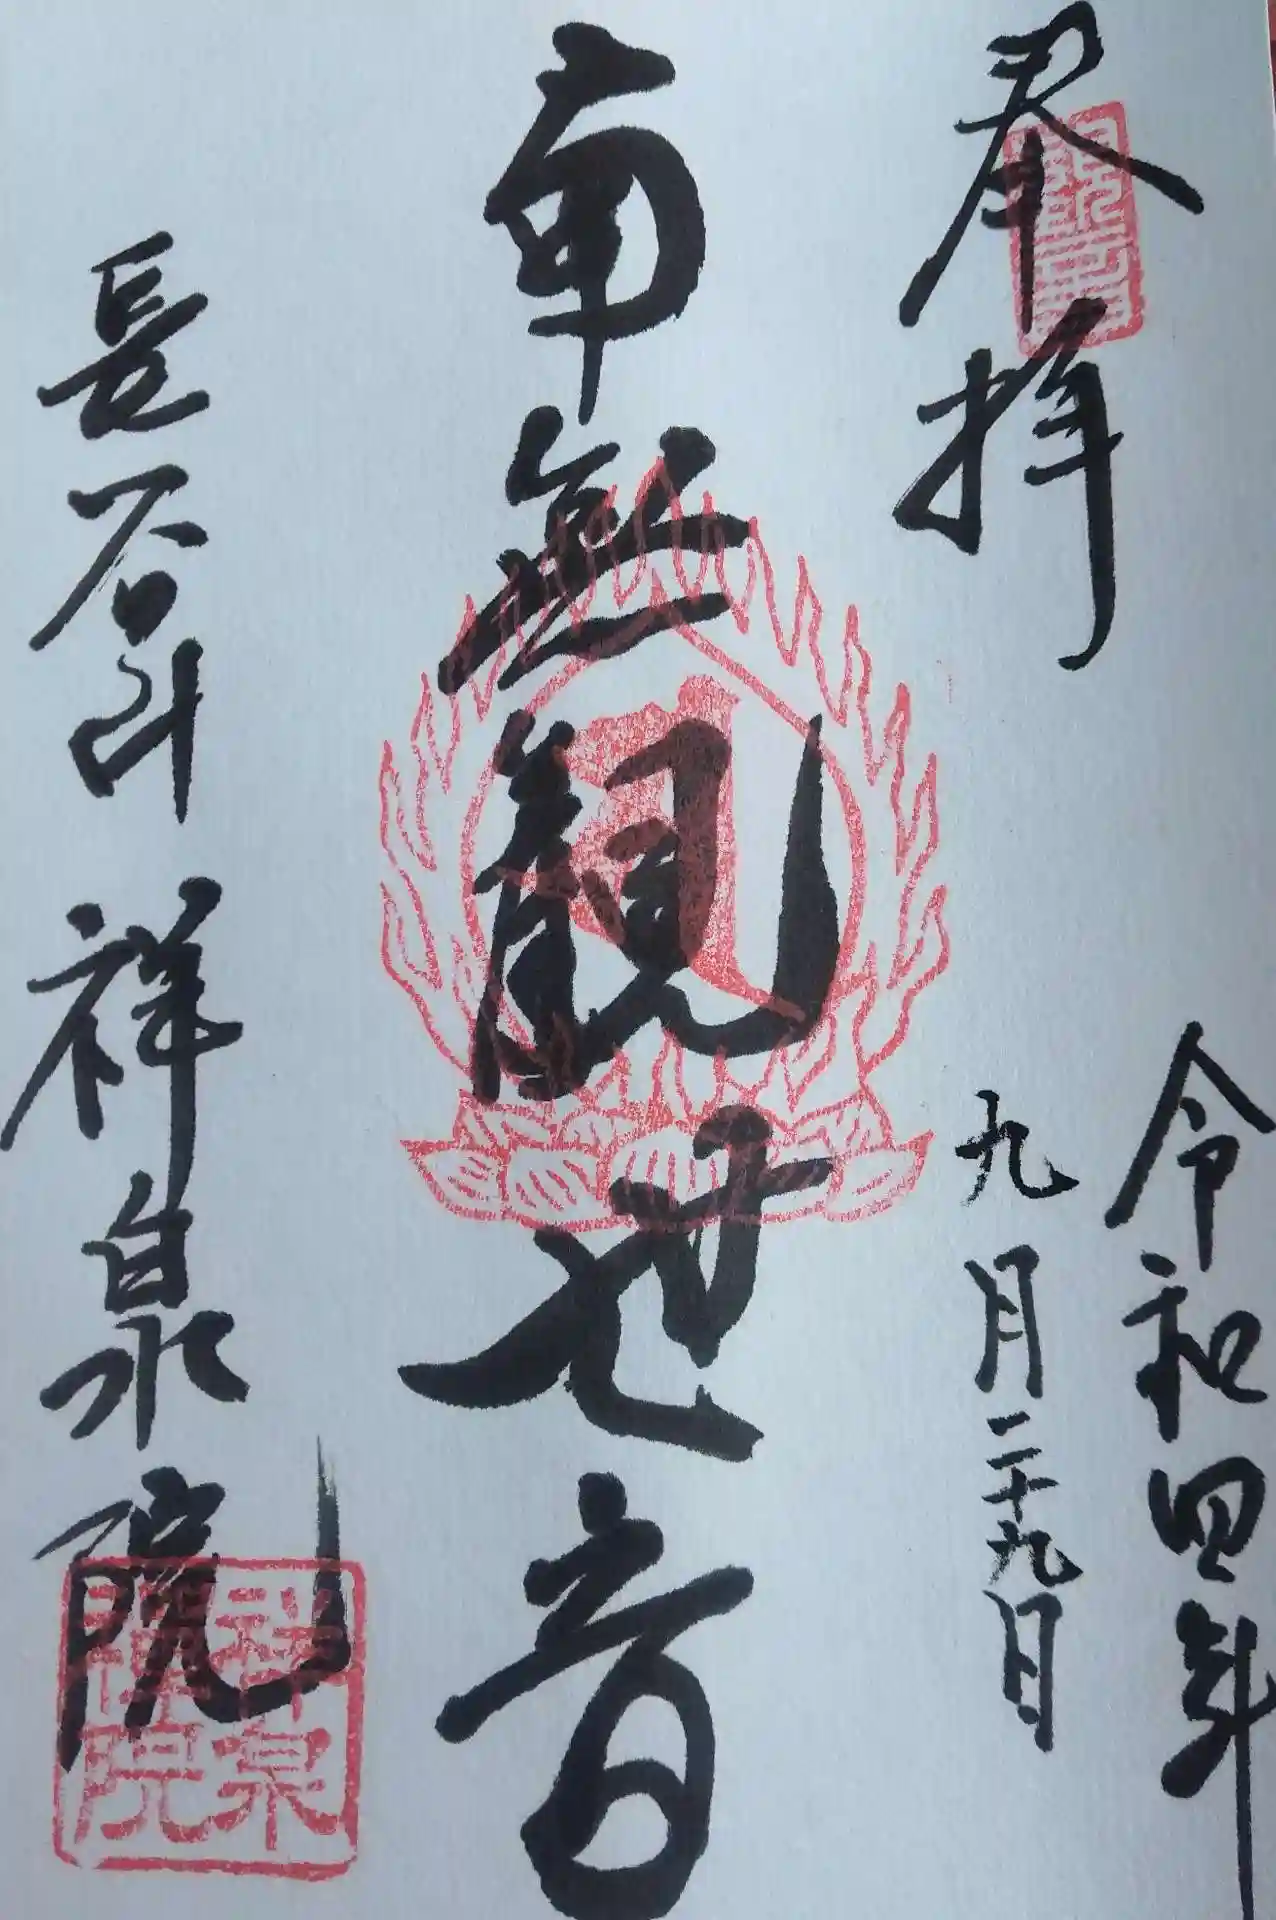 奉拝
令和四年
九月二十九日
南無観世音
長谷山 祥泉院